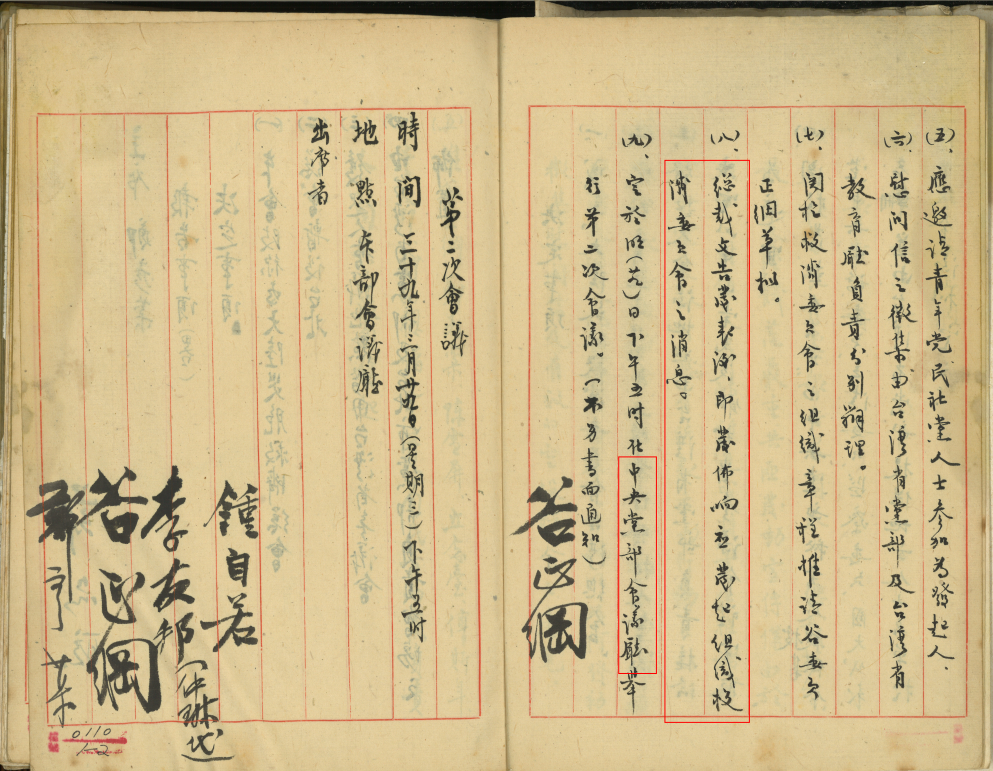 (五)、應邀請青年党民社黨人士参加為發起人、
(六)、慰问信之徵集由台湾省黨部及台湾省
教育廳負責分别辦理。
(七)、関於救濟委員會之组織章程推請谷委員
正纲草拟。
(八)、總裁文告發表後、即發佈响应發起组織救
濟委員會之消息。
(九)、定於明(廿九)日下午五时在中央党部會議廳舉
行第二次會議。(不另書面通知)
谷正綱
第二次會議
時間 三十九年三月廿九日(星期三)下午五时
地點 本部會議廳
出席者
鍾自若
李友邦(仲琳代)
谷正綱
鄭彦棻
0110